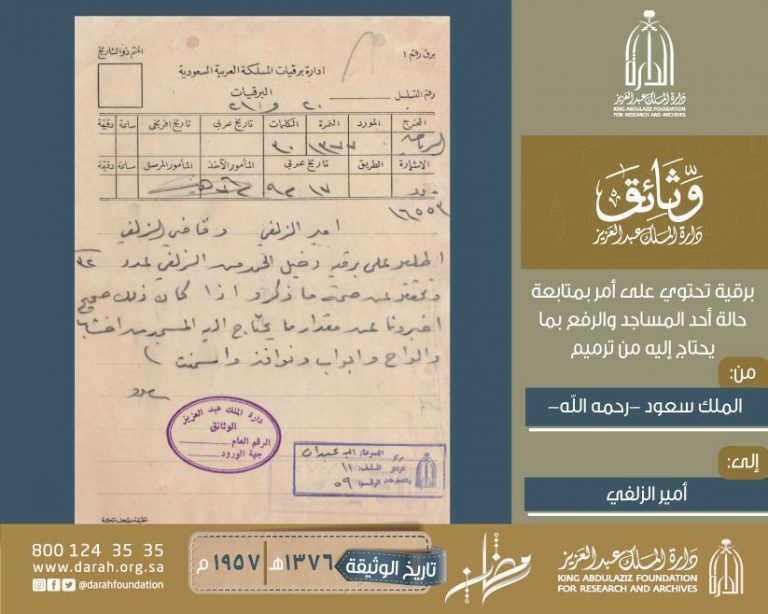 الختم ذو التاريخ
برق رقم ١
ادارة برقيات المملكة العربية السعودية
البرقيات
رقم التسلسل
٢٠ و ٢١
المخرج المورد النمرة الكلمات تاريخ عربي تاريخ افرنجي ساعة دقيقة
الرياض ١٣٧٧ ٣٠
الاشارة الطريق تاريخ عربي المأمور الآخذ المأمور المرسل ساعة دقيقة
١٧
١٦٥٥٣
امير الزلفي وقاضي الزلفي
اطلعوا على برقية دخيل من الزلفي لعدد ٩٢
وتحققوا عن صحة ما ذكر و اذا كان ذلك صحيح
اخبرونا عن مقدار ما يحتاج اليه المسجد من اخشاب
والواح وابواب ونوافذ واسمنت
سعود
دارة الملك عبد العزيز
الوثائق
الرقم العام
جهة الورود
المجموعة:
الملف: ١١
الوثيقة: ٥٩
دارة الملك عبد العزيز
KING ABDULAZIZ FOUNDATION
FOR RESEARCH AND ARCHIVES
وثائق
دارة الملك عبد العزيز
برقية تحتوي على أمر بمتابعة
حالة أحد المساجد والرفع بما
يحتاج إليه من ترميم
من:
الملك سعود -رحمه الله-
إلى:
أمير الزلفي
800 124 35 35
www.darah.org.sa
@darahfoundation
تاريخ الوثيقة ١٣٧٦هـ ١٩٥٧م
رمضان
دارة الملك عبد العزيز
KING ABDULAZIZ FOUNDATION
FOR RESEARCH AND ARCHIVES